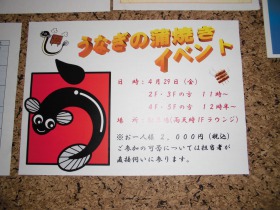 うなぎの蒲焼き
イベント
日時:4月29日(金)
2F・3Fの方 11時~
4F・5Fの方 12時半~
場所:(雨天時1Fラウンジ)
※お一人様2,000円(税込)
ご参加の可否については担当者が
直接伺いに参ります。